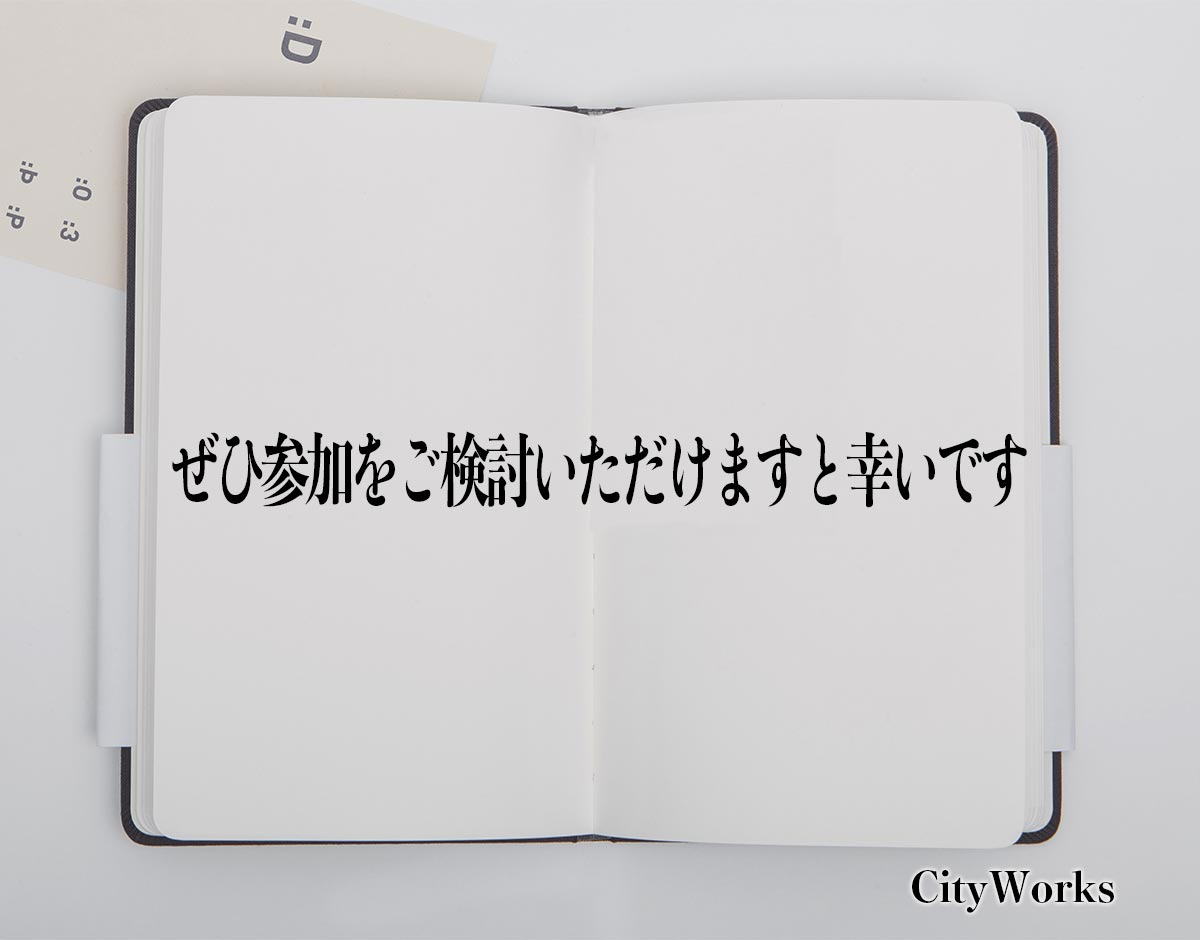 :D
:P :O
:P :3
ぜひ参加をご検討いただけますと幸いです
CityWorks